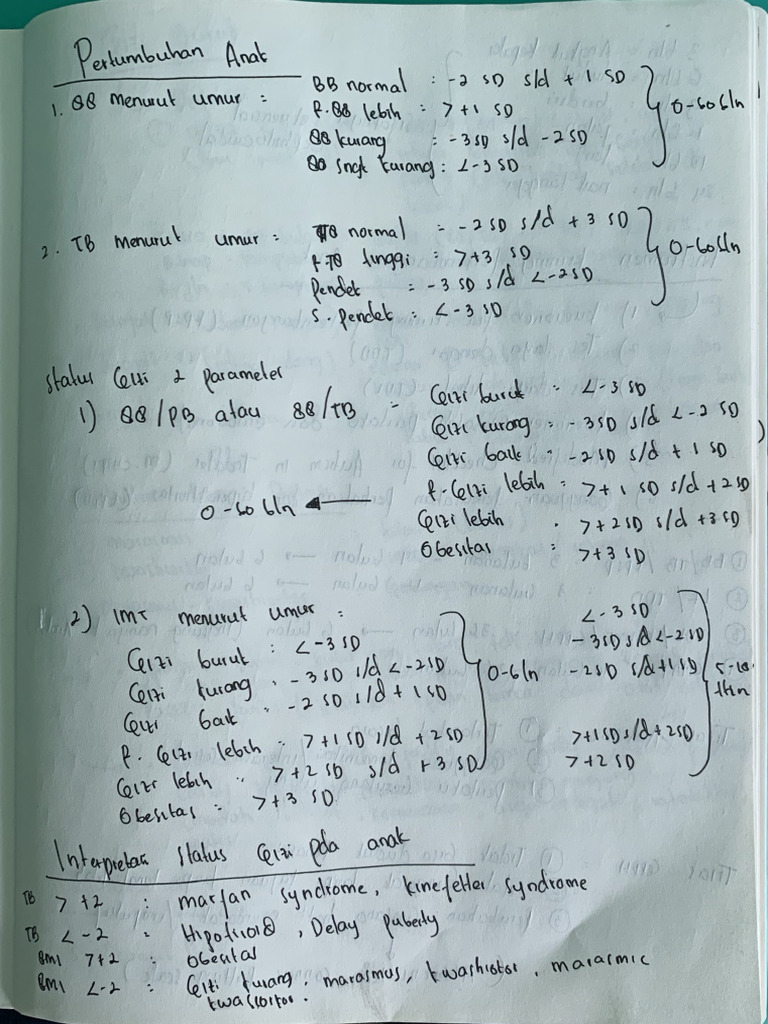 Pertumbuhan Anak
1. BB menurut umur : BB normal : -2 SD s/d +1 SD
R. BB lebih : >+1 SD
BB kurang : -3 SD s/d -2 SD
BB sngt kurang : <-3 SD
0-60 bln
2. TB menurut umur : TB normal : -2 SD s/d +3 SD
R. TB tinggi : >+3 SD
Pendek : -3 SD s/d <-2 SD
S. pendek : <-3 SD
0-60 bln
Status Gizi 2 parameter
1) BB/PB atau BB/TB = Gizi buruk : <-3 SD
Gizi kurang : -3 SD s/d <-2 SD
Gizi baik : -2 SD s/d +1 SD
R. Gizi lebih : >+1 SD s/d +2 SD
Gizi lebih : >+2 SD s/d +3 SD
Obesitas : >+3 SD
0-60 bln ←
2) IMT menurut umur :
Gizi buruk : <-3 SD <-3 SD
Gizi kurang : -3 SD s/d <-2 SD -3 SD s/d <-2 SD
Gizi baik : -2 SD s/d +1 SD -2 SD s/d +1 SD
R. Gizi lebih : >+1 SD s/d +2 SD >+1 SD s/d +2 SD
Gizi lebih : >+2 SD s/d +3 SD >+2 SD
Obesitas : >+3 SD
0-6ln
thn
Interpretasi status Gizi pda anak
TB > +2 : marfan syndrome, kinefelter syndrome
TB < -2 : Hipotiroid, Delay puberty
BMI >+2 : Obesitas
BMI <-2 : Gizi kurang, marasmus, kwashiorkor, marasmic
kwasiorkor.